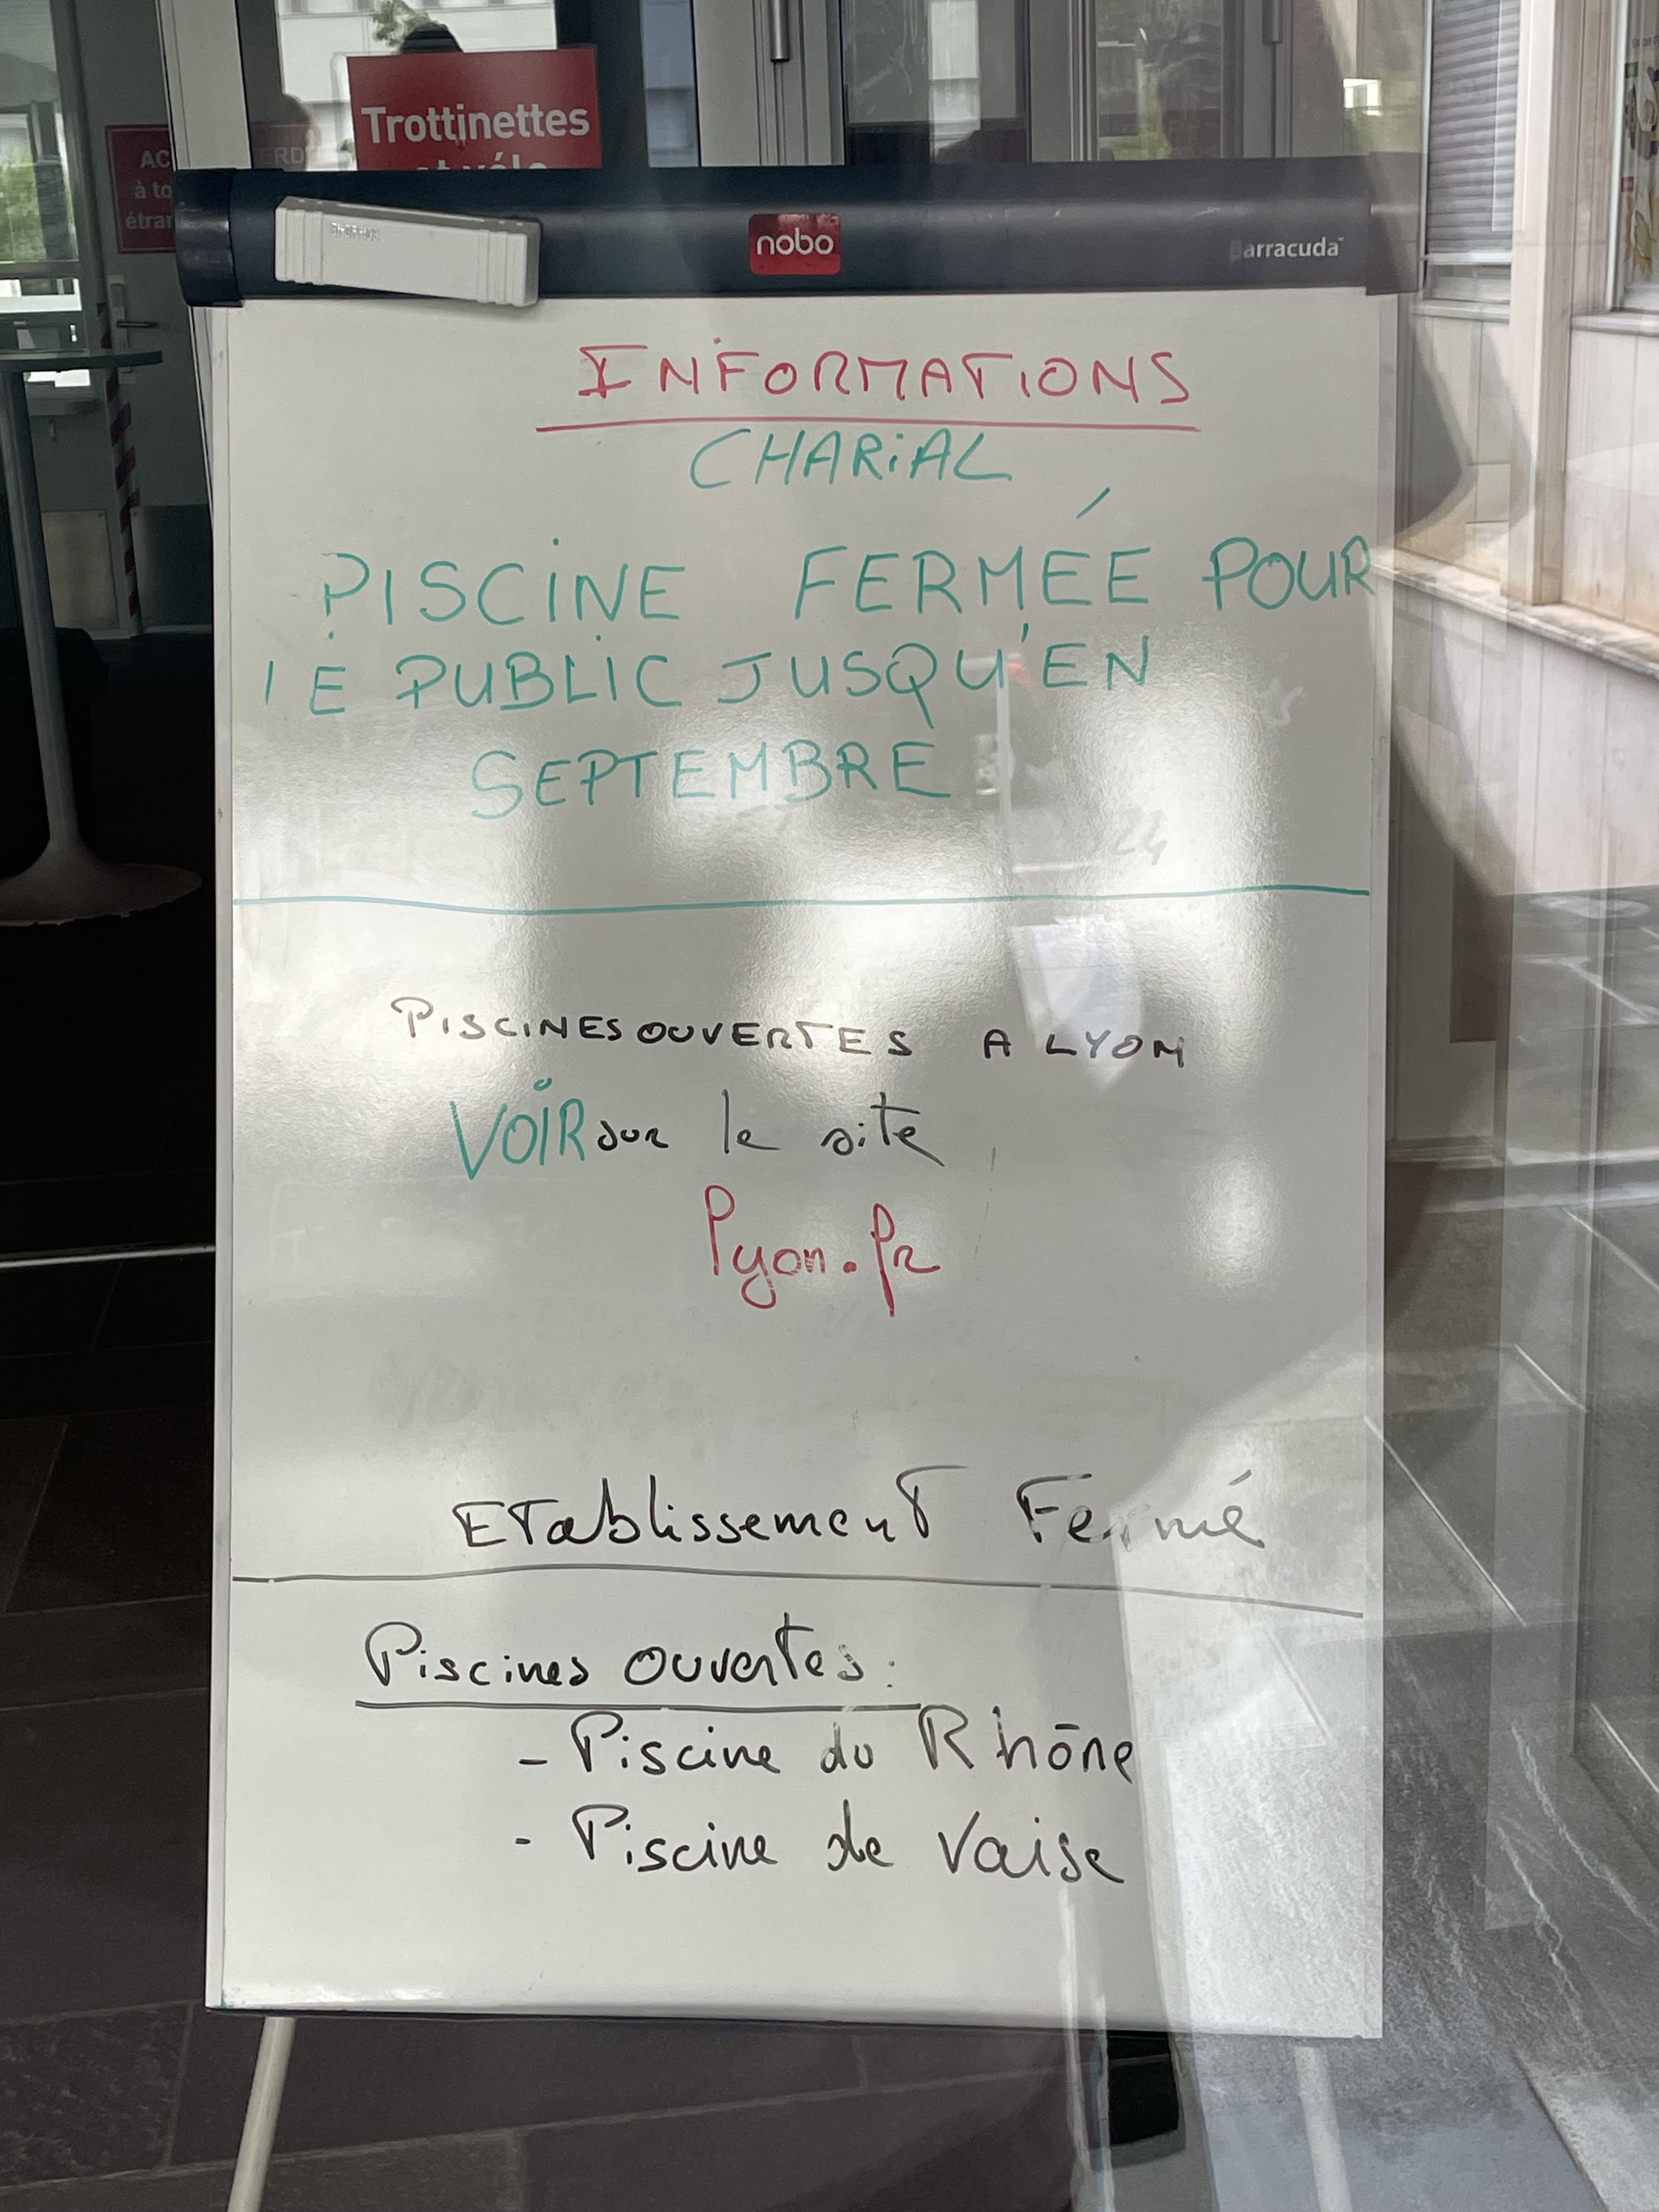 Trottinettes
et vélo
AC ERD
à to
étran
nobo
Barracuda
INFORMATIONS
CHARIAL
PISCINE FERMÉE POUR
lE PUBLIC JUSQU'EN
SEPTEMBRE
PISCINES OUVERTES A LYON
VOIR sur le site
Pyon.fr
ETablissemenT Fermé
Piscines ouvertes:
- Piscine du Rhône
- Piscine de Vaise